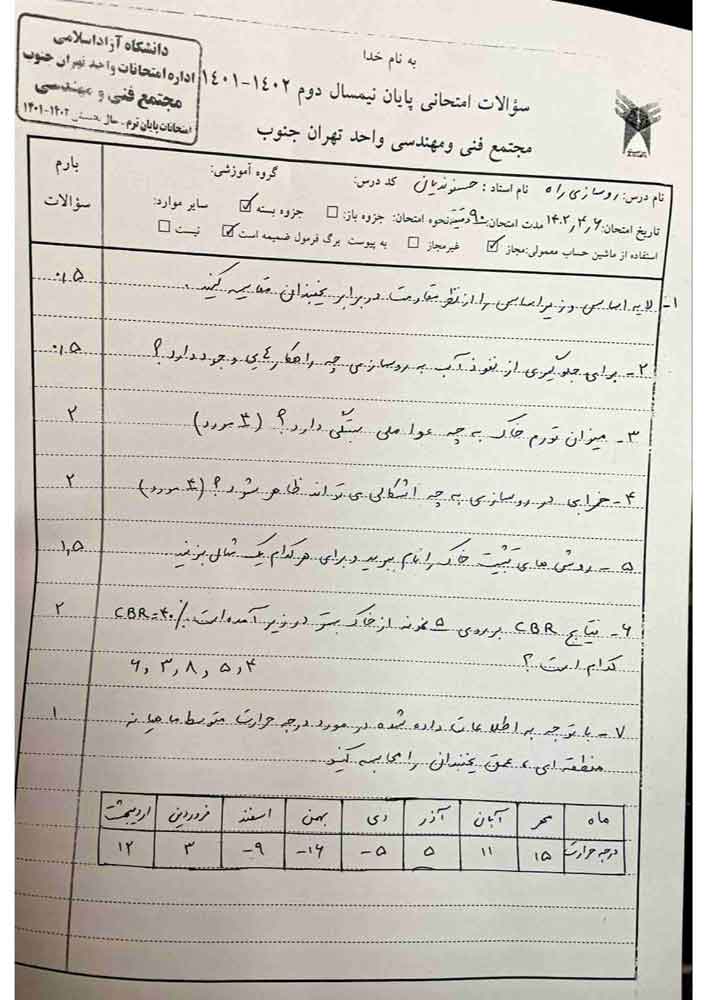 به نام خدا
دانشگاه آزاد اسلامی
اداره امتحانات واحد تهران جنوب
مجتمع فنی و مهندسی
امتحانات پایان ترم - سال ۱۴۰۲-۱۴۰۱
سؤالات امتحانی پایان نیمسال دوم ۱۴۰۲-۱۴۰۱
مجتمع فنی ومهندسی واحد تهران جنوب
نام درس: روسازی راه نام استاد: کد درس: گروه آموزشی:
تاریخ امتحان: ۱۴۰۲٫۴٫۶ مدت امتحان: ۹۰ دقیقه نحوه امتحان: جزوه باز: جزوه بسته سایر موارد:
استفاده از ماشین حساب معمولی: مجاز غیرمجاز به پیوست برگ فرمول ضمیمه است نیست
بارم سؤالات
۱- لایه اساس و زیراساس را از نظر مقاومت در برابر یخبندان مقایسه کنید. ۰٫۵
۲- برای جلوگیری از نفوذ آب به روسازی چه راهکارهایی وجود دارد؟ ۰٫۵
۳- میزان تورم خاک به چه عواملی بستگی دارد؟ (۴ مورد) ۲
۴- خرابی در روسازی به چه اشکالی می تواند ظاهر شود؟ (۴ مورد) ۲
۵- روش های تثبیت خاک را نام ببرید و برای هر کدام یک مثال بزنید ۱٫۵
۶- نتایج CBR بر روی ۵ نمونه از خاک بستر در زیر آمده است. CBR=۴۰٪ ۲
کدام است؟ ۶ , ۳ , ۸ , ۵ , ۴
۷- با توجه به اطلاعات داده شده در مورد درجه حرارت متوسط ماهیانه ۱
منطقه ای، عمق یخبندان را محاسبه کنید.
ماه مهر آبان آذر دی بهمن اسفند فروردین اردیبهشت
درجه حرارت ۱۵ ۱۱ ۵ -۵ -۱۶ -۹ ۳ ۱۲